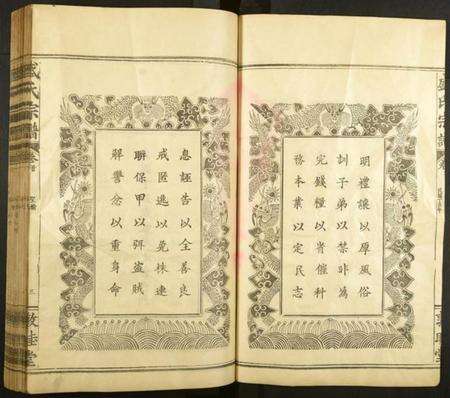 明禮讓以厚風俗
訓子弟以禁非為
完錢糧以省催科
務本業以定民志
息誣告以全善良
戒匿逃以免株連
聯保甲以弭盜賊
解讐忿以重身命
氏宗譜
卷首
敦
堂